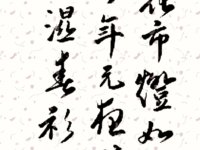 市燈如
年元夜
濕春衫